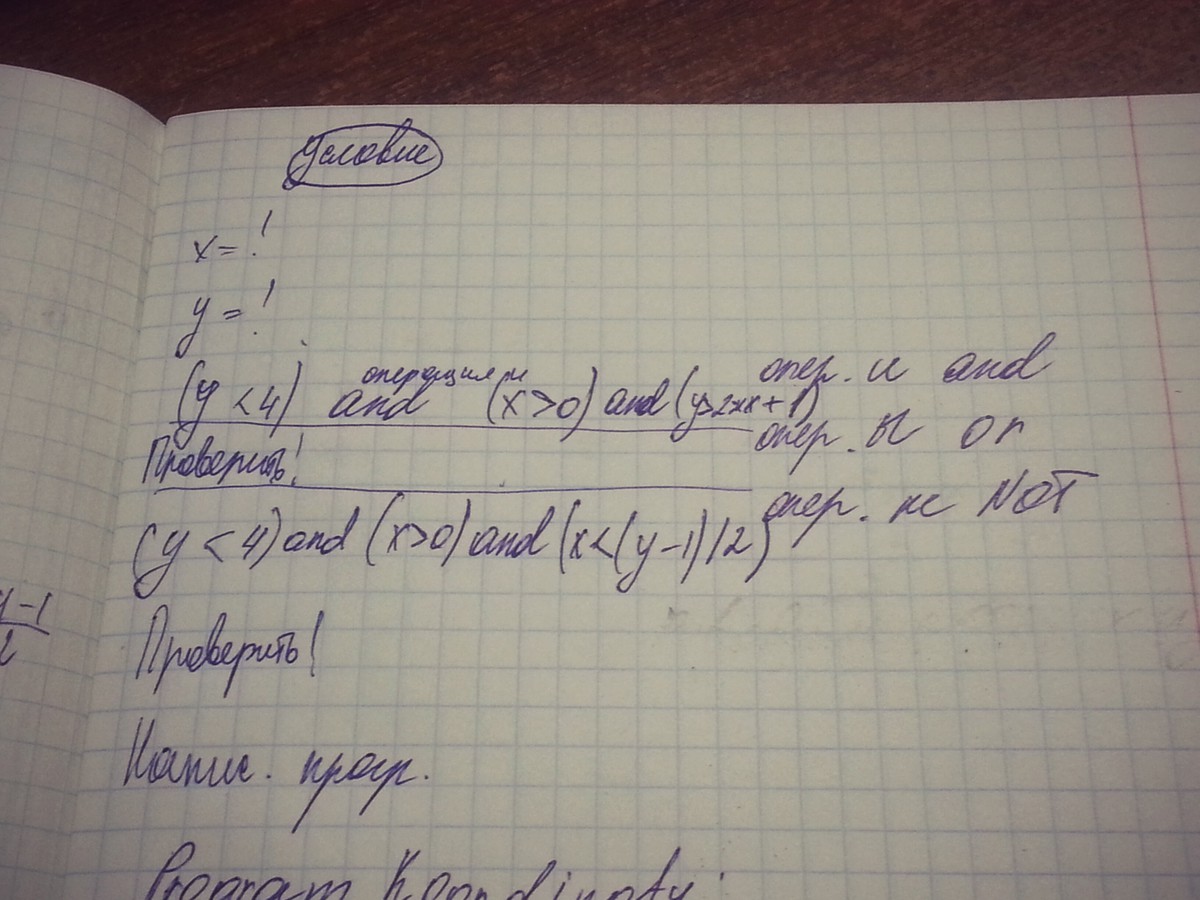 Условие
x = !
y = !
операция и
(y < 4) and (x > 0) and (y > 2*x + 1)
опер. и and
опер. или or
опер. не NOT
Проверить!
(y < 4) and (x > 0) and (x < (y - 1) / 2)
y - 1
2
Проверить!
Напис. прогр.
Program Koordinaty;